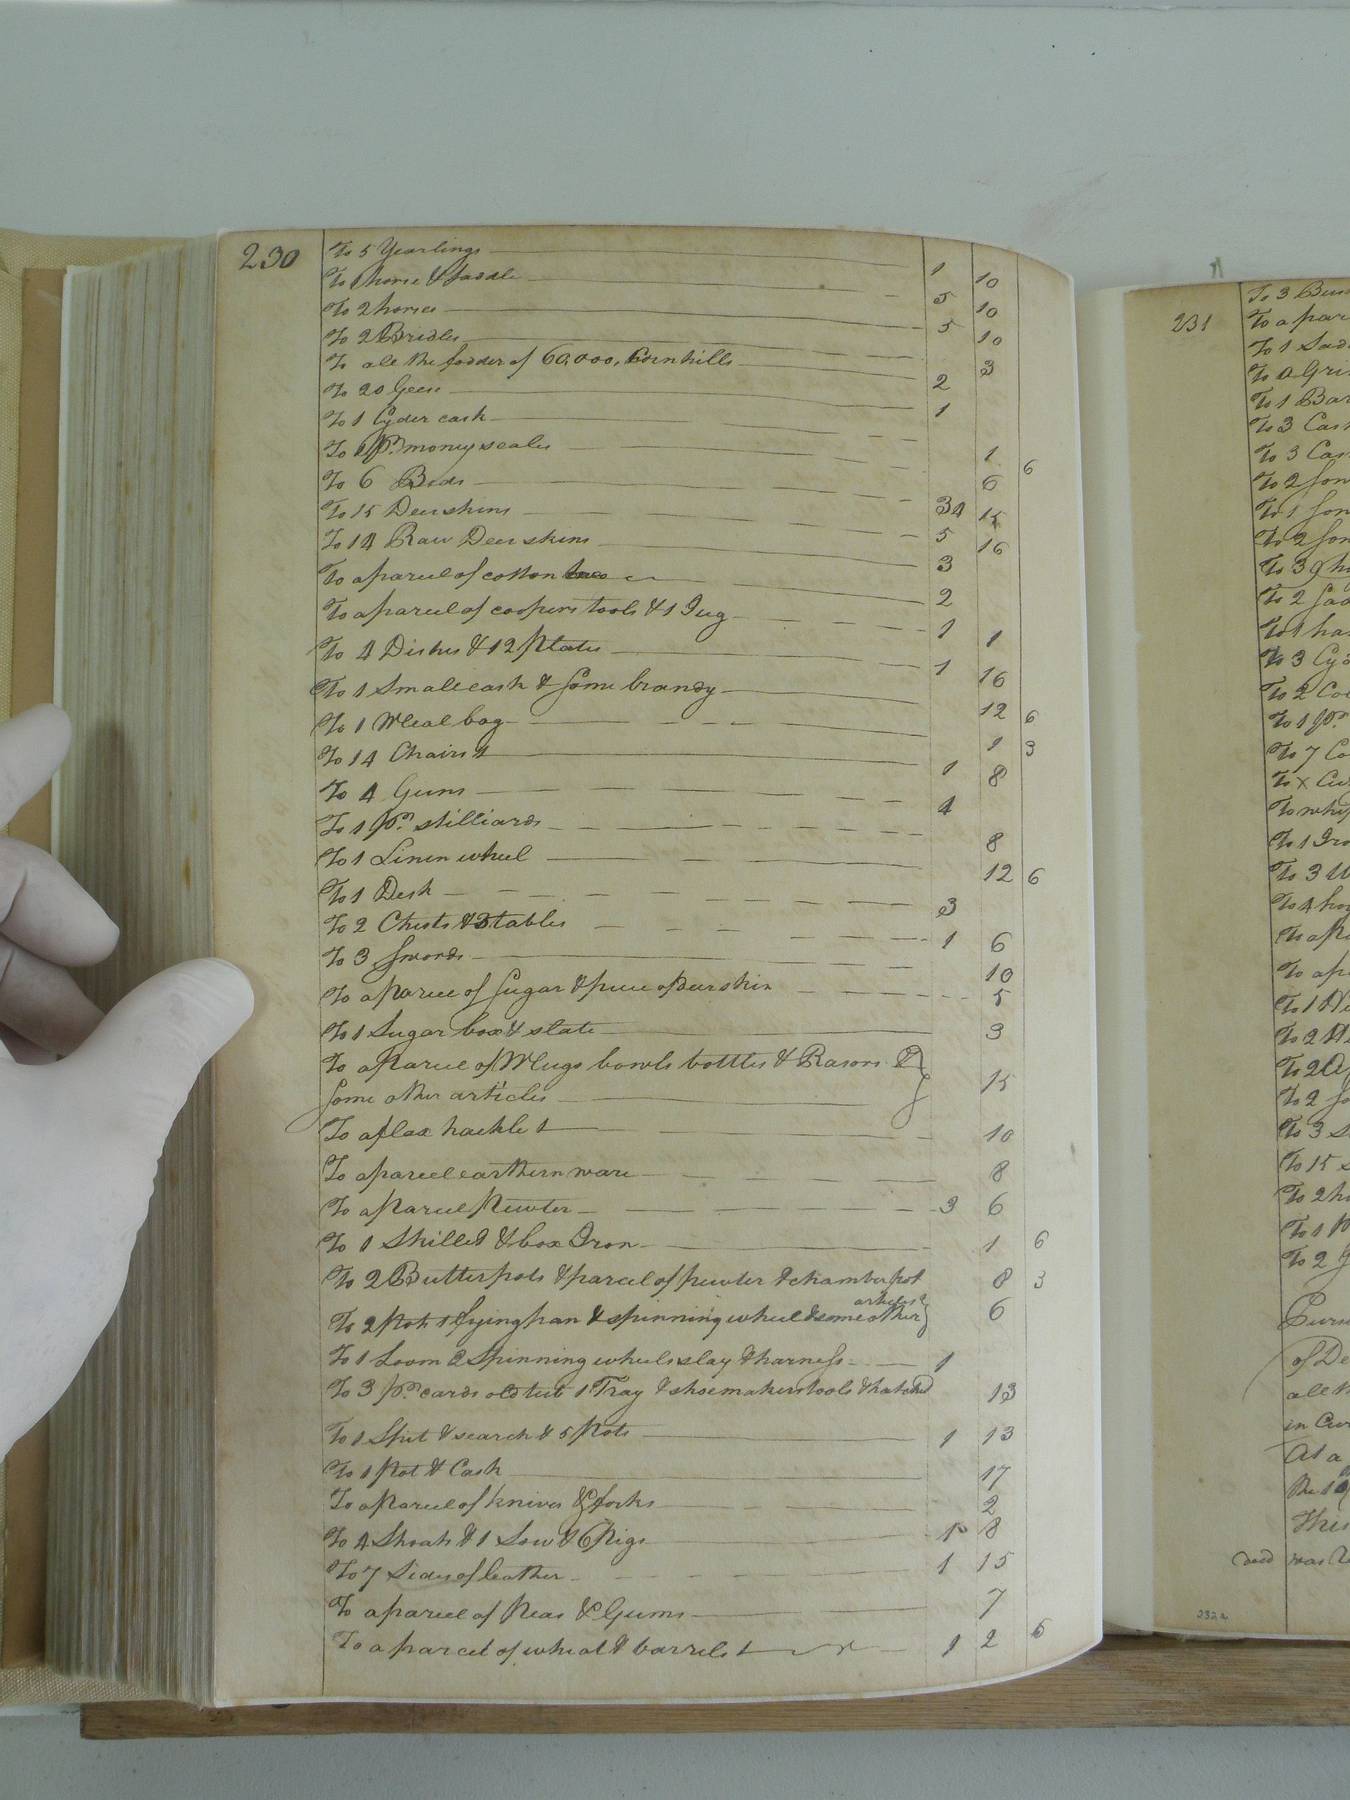 230
To 5 Yearlings 1 10
To 1 horse & saddle 5 10
To 2 horses 5 10
To 2 Bridles 3
To all the fodder of 60,000, Cornhills 2
To 20 Geese 1
To 1 Cyder cask 1 6
To 1 Pr. money scales 6
To 6 Beds 34 15
To 15 Deerskins 5 16
To 14 Raw Deerskins 3
To a parcel of cotton 2
To a parcel of coopers tools & 1 Jug 1 1
To 4 Dishes & 12 Plates 1 16
To 1 Small cask & some brandy 12 6
To 1 Meal bag 1 3
To 14 Chairs 1 8
To 4 Guns 4
To 1 pr. stilliards 8
To 1 Linen wheel 12 6
To 1 Desk 3
To 2 Chests & 3 tables 1 6
To 3 Swords 10
To a parcel of sugar & piece of deerskin 5
To 1 Sugar box & slate 3
To a parcel of Mugs bowls bottles & Rasors &
some other articles 15
To a flax hackle 10
To a parcel earthern ware 8
To a parcel Pewter 3 6
To 1 Skillet & box Iron 1 6
To 2 Butterpots & parcel of pewter & chamberpot 8 3
To 2 Pots 1 frying pan & spinning wheel & some other articles 6
To 1 Loom 2 Spinning wheels slay & harness 1
To 3 pr. cards old 1 Tray & shoemakers tools & hatchet 13
To 1 Spit & search & 5 Pots 1 13
To 1 Pot & Cask 17
To a parcel of knives & forks 2
To 4 Shoats & 1 Sow & 6 Pigs 1 8
To 7 Sides of leather 1 15
To a parcel of Peas & Gums 7
To a parcel of wheat & barrels 1 2 6
231
To 3
To a par
To 1 Sad
To
To 1 Bar
To 3 Cas
To 3
To 2
To 1
To 2
To 3
To 2
To 1 ha
To 3 Cy
To 2
To 1 pr.
To 7
To
To
To 1
To 3
To 4
To a
To a
To 1
To 2
To 2
To 2
To 3
To 15
To 2
To 1
To 2
of De
all
in
At a
the
This
was
232a